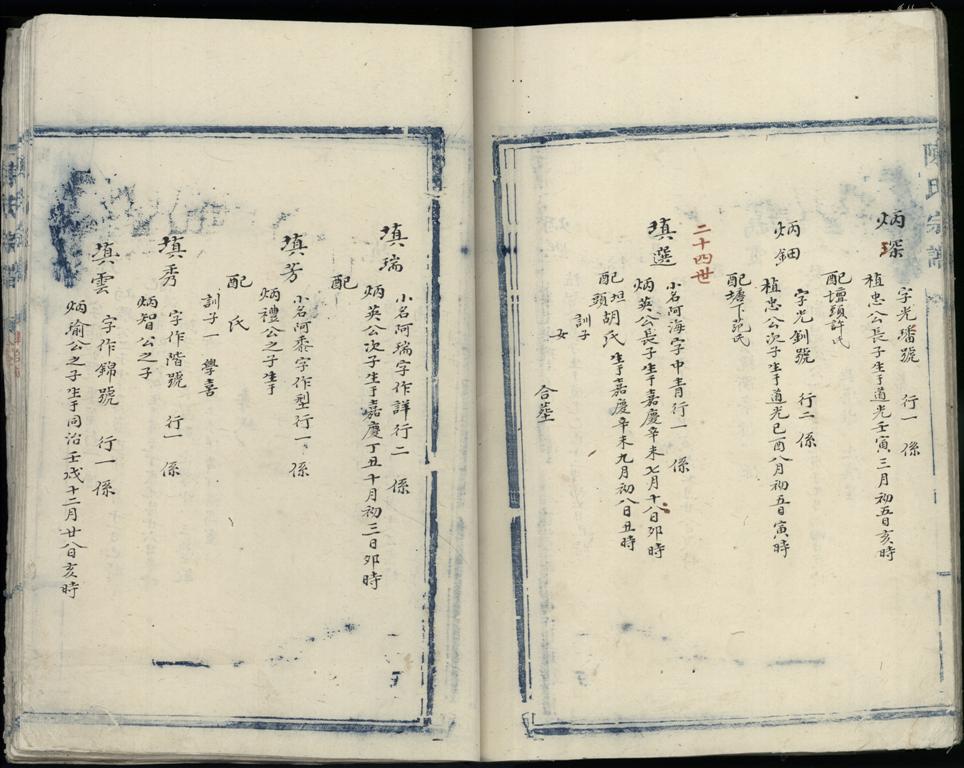 陳氏宗譜
炳琛
字光璠號 行一 係
植忠公長子生于道光壬寅三月初五日亥時
配壇頭許氏
炳鈿
字光釧號 行二 係
植忠公次子生于道光己酉八月初五日寅時
配塘下范氏
二十四世
填選
小名阿海字中青行一 係
炳英公長子生于嘉慶辛未七月十八日卯時
配坦頭胡氏生于嘉慶辛未九月初八日丑時
訓子
女
合葬
填瑞
小名阿瑞字作詳行二 係
炳英公次子生于嘉慶丁丑十月初三日卯時
配
填芳
小名阿黍字作型行一 係
炳禮公之子生于
配 氏
訓子一 學喜
填秀
字作階號 行一 係
炳智公之子
填雲
字作錦號 行一 係
炳瑜公之子生于同治壬戌十二月廿八日亥時